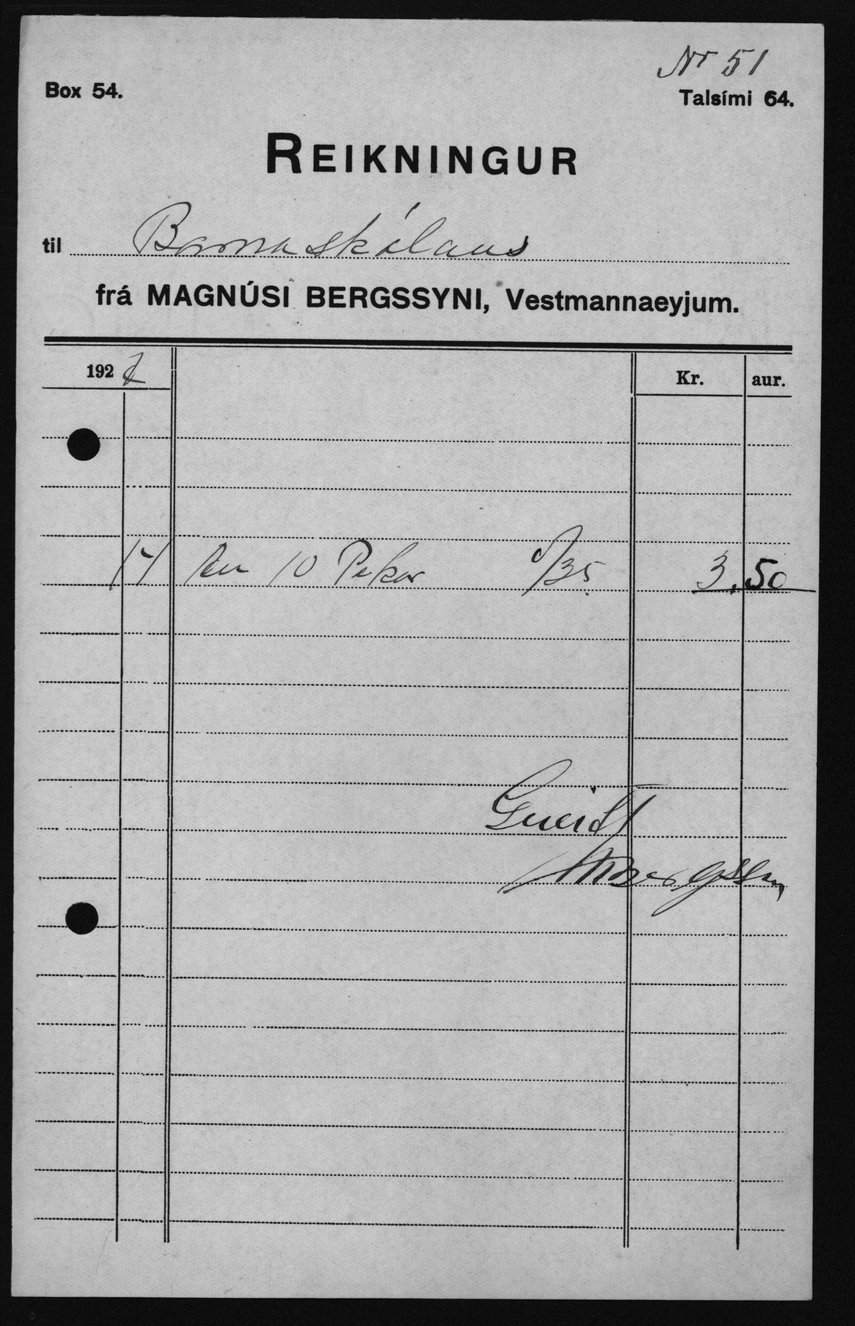 Nr 51
Box 54.
Talsími 64.
REIKNINGUR
til Barnaskólans
frá MAGNÚSI BERGSSYNI, Vestmannaeyjum.
192 Kr. aur.
10 Pokar 35 3,50
Greitt
MBergsson